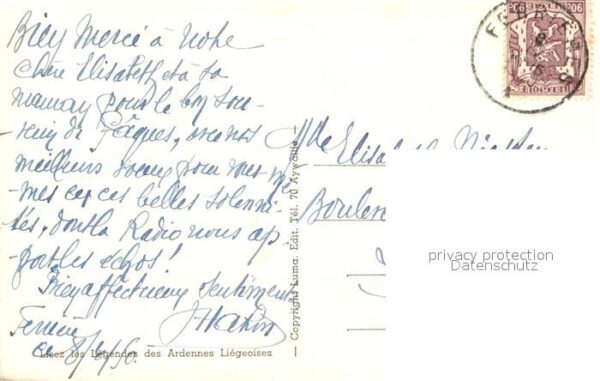 Bien Merci à notre
chère Elisabeth et à sa
maman pour le bon sou-
venir de Pâques, avec nos
meilleurs voeux pour vous-mê-
mes ces belles solenni-
tés, dont la Radio nous ap-
porte les échos!
Bien affectueux Sentiments
Ferrières
ce 8/4/56.
Lisez les Légendes des Ardennes Liégeoises
Copyright Luma. Edit. Tél. 70 Aywaille
Mlle Elisabeth
Boulen
privacy protection
Datenschutz
BELGIQUE
90